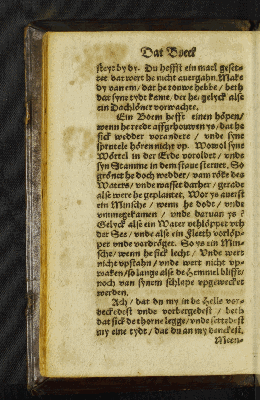 Dat Boeck
steyt by dy. Du heffst ein mael geset-
tet dat wert he nicht auergahn. Make
dy van em / dat he rouwe hebbe / beth
dat syne tydt kame / der he gelyck alse
ein Dachlöner vorwachte.
Ein Boem hefft einen höpen /
wenn he rede affgehouwen ys / dat he
sick wedder vorandere / vnde syne
sprutele hören nicht vp. Wowol syne
Wörtel in der Erde voroldet / vnde
syn Stamme in dem stoue steruet. So
grönet he doch wedder / vam röke des
Waters / vnde wasset darher / gerade
alse were he geplantet. Wor ys auerst
ein Minsche / wenn he dodt / vnde
vmmegekamen / vnde daruan ys?
Gelyck alse ein Water vthlöpper vth
der See / vnde alse ein Fleeth vorlöp-
per vnde vordröget. So ys ein Min-
sche / wenn he sick lecht / Vnde wert
nicht vpstahn / vnde wert nicht vp-
waken / so lange alse de Hemmel blifft /
noch van synem schlape vpgewecket
werden.
Ach / dat du my in de Helle vor-
deckedest vnde vorbergedest / beth
dat sick de thorne legge / vnde settedest
my eine tydt / dat du an my denckest.
Meen-